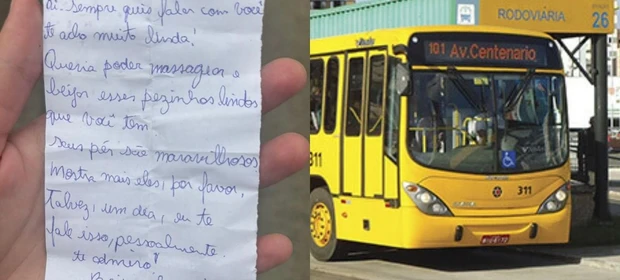 oi. sempre quis falar com você
te acho muito linda!
Queria poder massagear e
beijar esses pezinhos lindos
que você tem.
seus pés são maravilhosos
Mostra mais eles, por favor,
Talvez, um dia, eu te
fale isso, pessoalmente.
te admiro!
RODOVIÁRIA
26
101 Av.Centenario
311
311